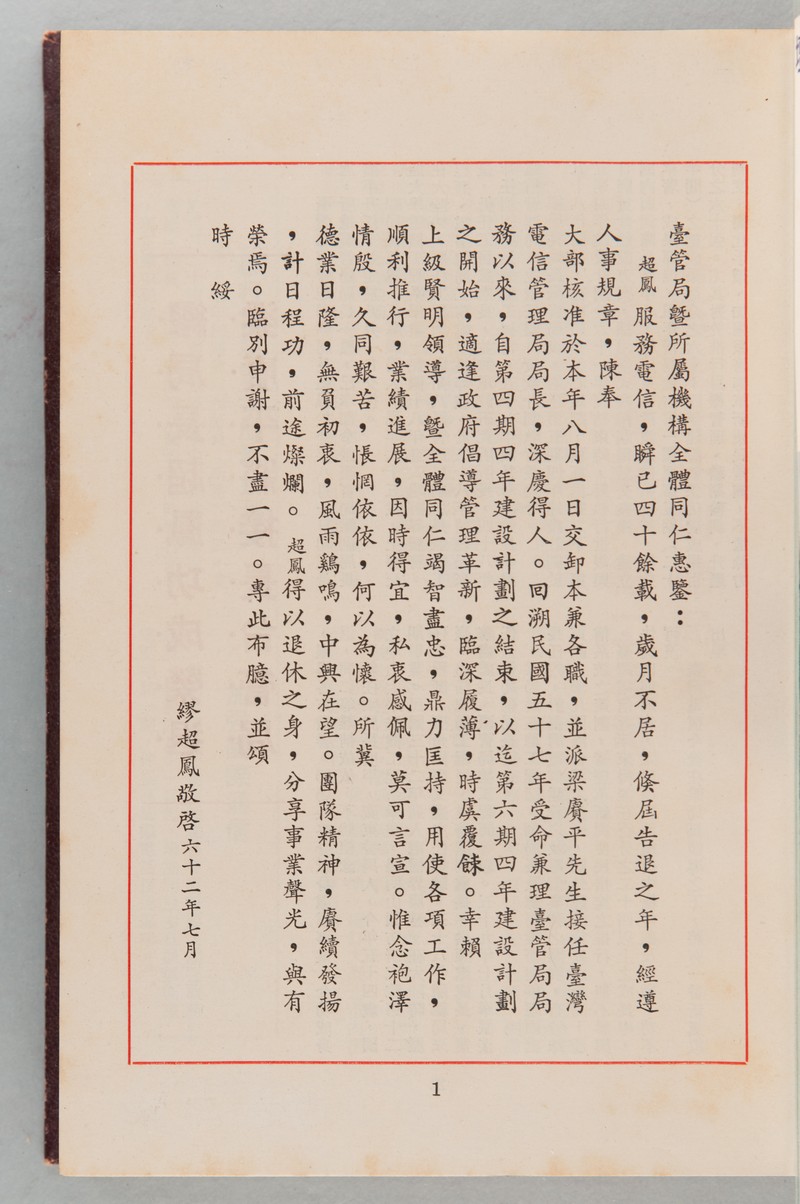 臺管局曁所屬機構全體同仁惠鑒：
超鳳服務電信，瞬已四十餘載，歲月不居，倏屆告退之年，經遵
人事規章，陳奉
大部核准於本年八月一日交卸本兼各職，並派梁賡平先生接任臺灣
電信管理局局長，深慶得人。回溯民國五十七年受命兼理臺管局局
務以來，自第四期四年建設計劃之結束，以迄第六期四年建設計劃
之開始，適逢政府倡導管理革新，臨深履薄，時虞覆餗。幸賴
上級賢明領導，曁全體同仁竭智盡忠，鼎力匡持，用使各項工作，
順利推行，業績進展，因時得宜，私衷感佩，莫可言宣。惟念袍澤
情殷，久同艱苦，悵惘依依，何以為懷。所冀
德業日隆，無負初衷，風雨鷄鳴，中興在望。團隊精神，賡續發揚
，計日程功，前途燦爛。超鳳得以退休之身，分享事業聲光，與有
榮焉。臨別申謝，不盡一一。專此布臆，並頌
時綏
繆超鳳敬啓六十二年七月
1